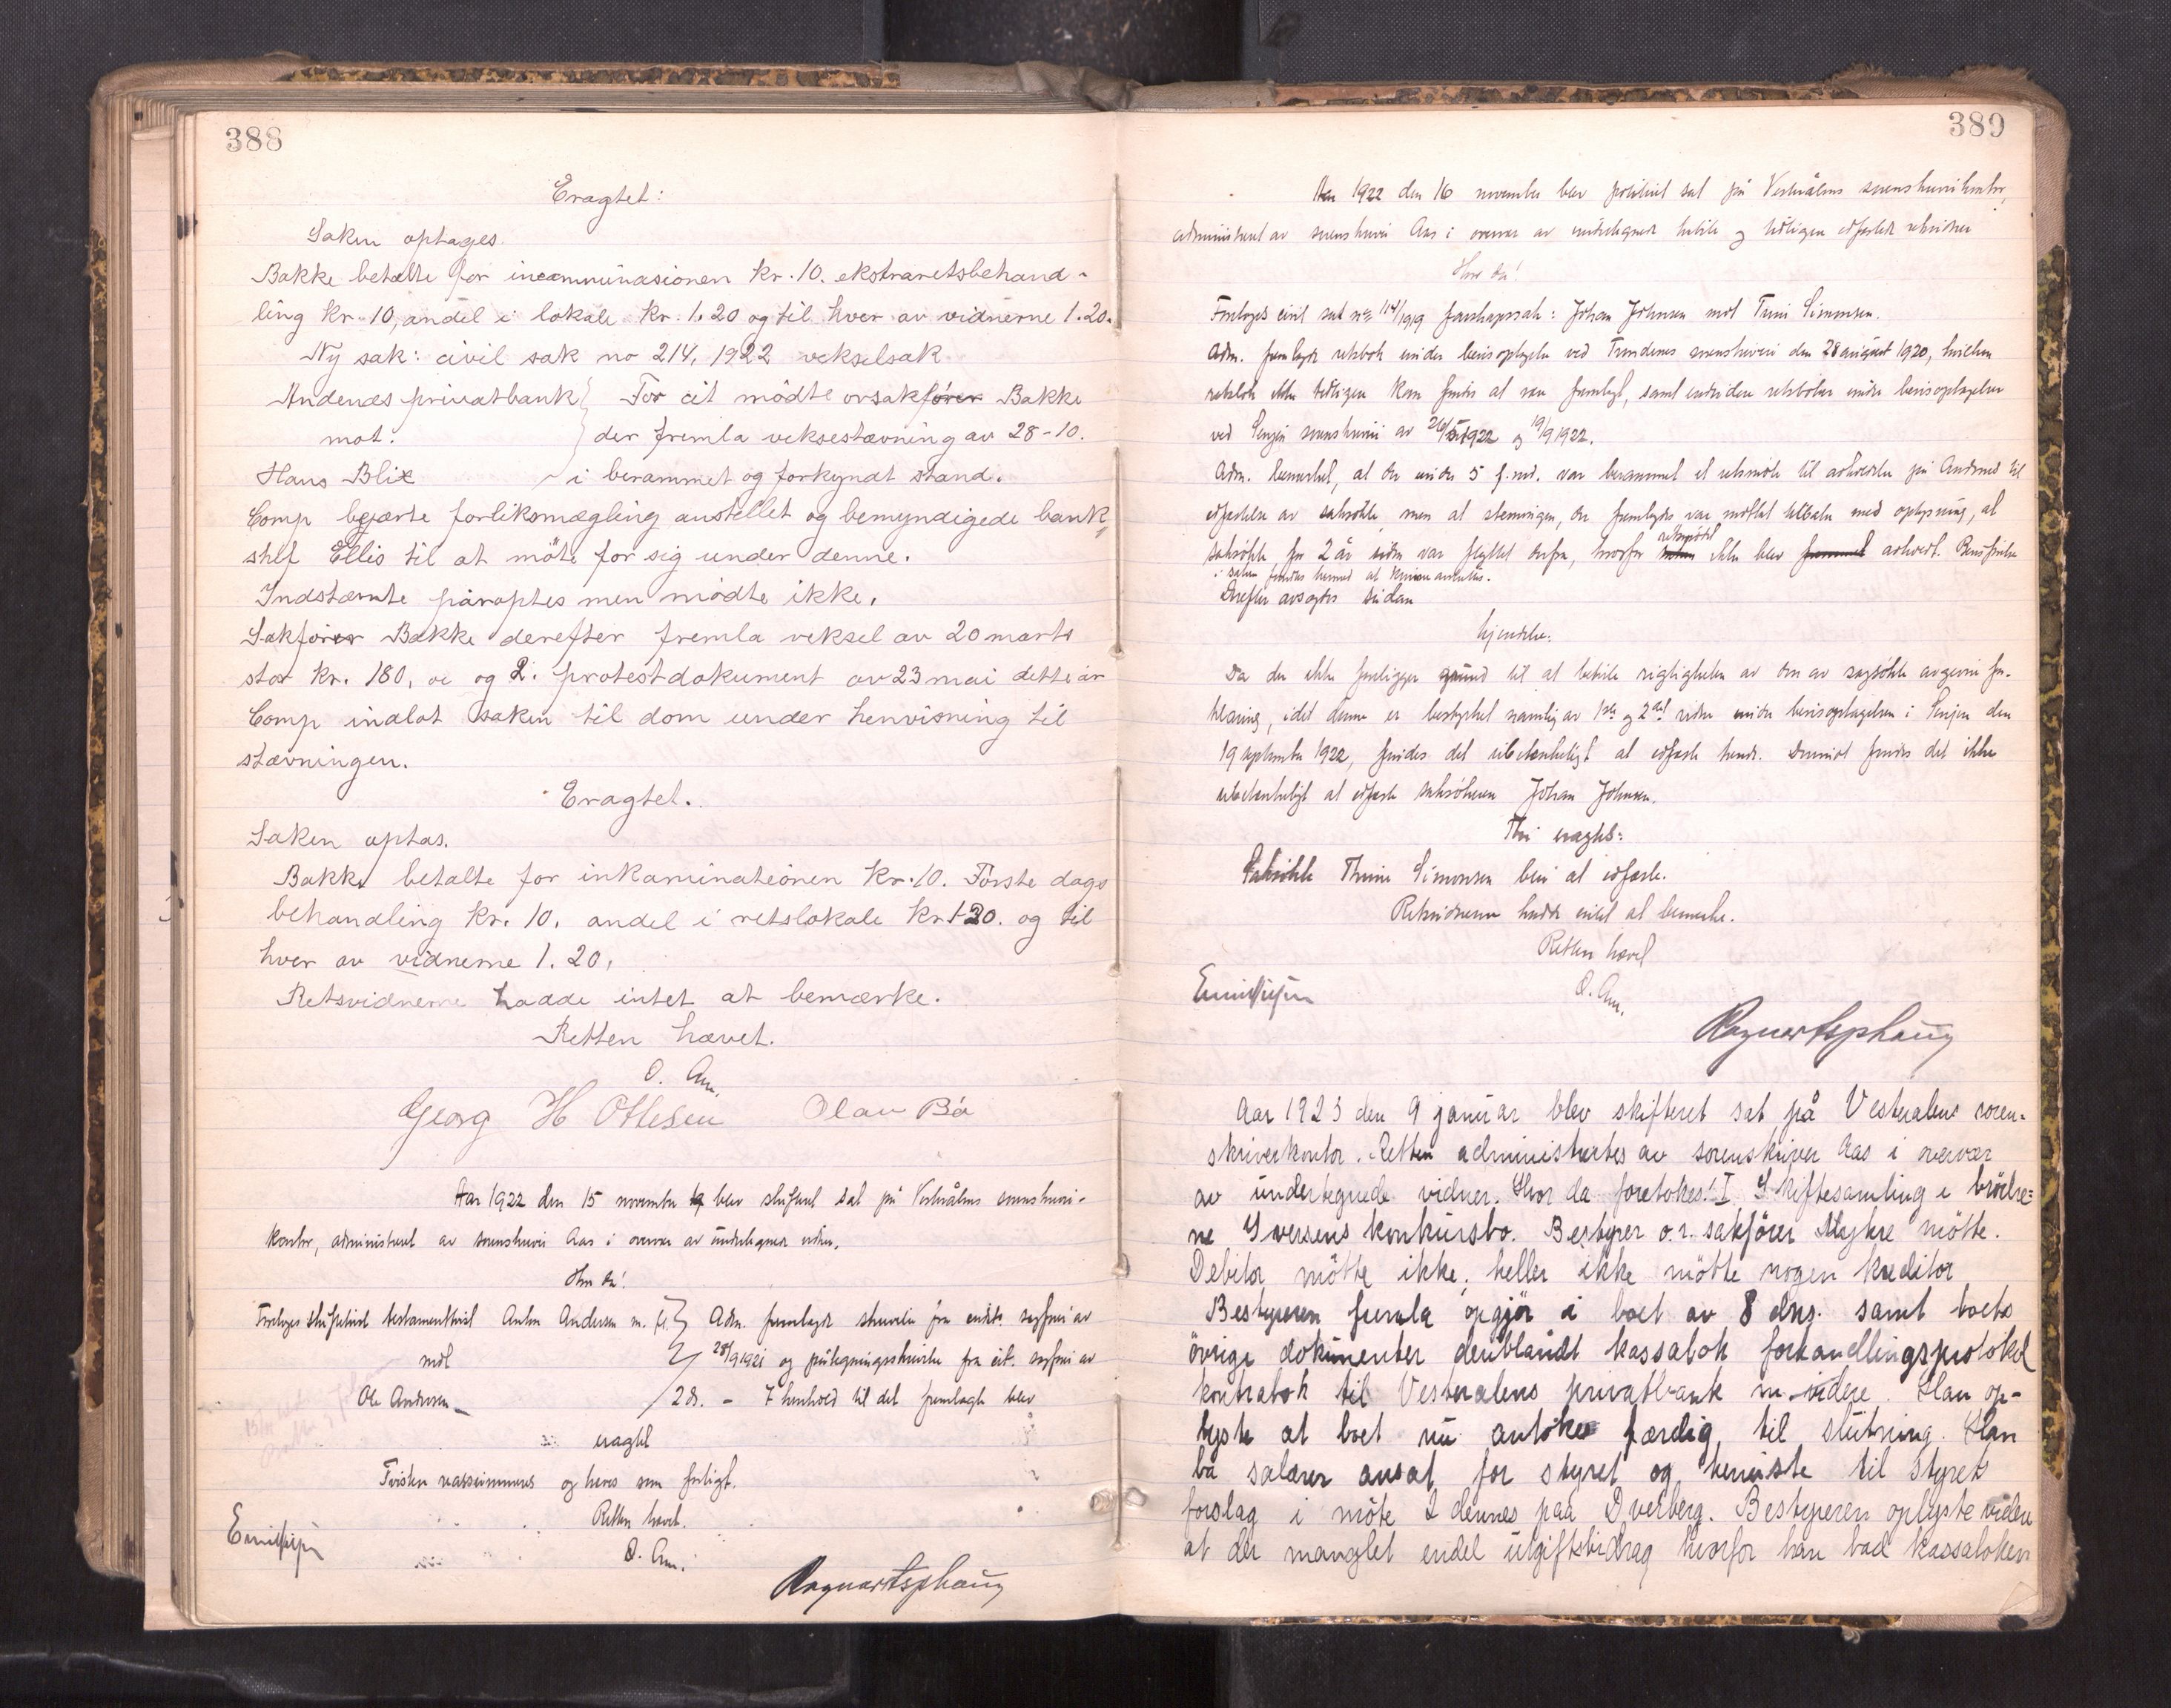 388
Eragtet:
Saken optages.
Bakke betalte for incamminasionen kr. 10. ekstraretsbehand-
ling kr. 10, andel i lokale kr. 1.20 og til hver av vidnerne 1.20.
Ny sak: civil sak no 214, 1922 vekselsak
Andenæs privatbank } For cit mödte ovsakförer Bakke
mot: } der fremla veksestævning av 28-10.
Hans Blix i berammet og forkyndt stand.
Comp begjærte forliksmægling anstellet og bemyndigede bank
shef Ellis til at möte for sig under denne.
Indstævnte påroptes men mødte ikke.
Sakförer Bakke derefter fremla veksel av 20 marts
stor kr. 180, oc og 2. protestdokument av 23 mai dette år
Comp indlot saken til dom under henvisning til
stævningen.
Eragtet.
Saken optas.
Bakke betalte for inkaminationen kr. 10. Förste dags
behandling kr. 10. andel i retslokale kr 1.20. og til
hver av vidnerne 1.20,
Retsvidnerne hadde intet at bemærke.
Retten hævet.
O. Aas.
Georg H Ottesen Olav Bö
Aar 1922 den 15 november blev skifteret sat på Vesterålens sorenskriver-
kontor, administrert av sorenskriver Aas i overvær av undertegnede vidner.
Hvor da!
Foretoges skifteret testamenttvist Anton Andersen m. fl. } Adm. fremlagde skrivelse fra citte. sagfører av
mot 28/9 1921 og påtegningsskrivelse fra cit. sagfører av
Ole Andersen 2 ds. - I henhold til det fremlagte blev
eragtet
Tvisten og hæves som forligt.
Retten hævet.
O. Aas.
389
Aar 1922 den 16 november blev politiret sat på Vesterålens sorenskriverkontor,
administrert av sorenskriver Aas i overvær av undertegnede habile og tidligere edfæstede retsvidner
Hvor da!
Foretoges civil sak nr 114/1919 farskapssak: Johan Johnsen mot Trine Simonsen.
Adm. fremlagde retsbok under bevisoptagelse ved Trondenes sorenskriveri den 28 august 1920, hvilken
retsbok ikke tidligere kan findes at være fremlagt, samt endvidere retsbøker under bevisoptagelser
ved Senjen sorenskriveri av 1922 og 19/9 1922.
Adm. bemerket, at der under 5 f. md. var berammet et retsmöte til avholdelse på Andenes til
edfæstelse av saksökte, men at stevningen, der fremlagdes var mottat tilbake med oplysning, at
saksökte for 2 år siden var flyttet derfra, hvorfor retsmötet ikke blev avholdt. Bevisförselen
i saken fandtes hermed at kunne avsluttes.
Derefter avsagdes sådan
kjendelse:
Da der ikke foreligger grund til at betvile rigtigheten av den av sagsökte avgivne for-
klaring, idet denne er bestyrket navnlig av 1ste og 2det vidne under bevisoptagelsen i Senjen den
19 september 1922, findes det ubetænkeligt at edfæste hende. Derimot findes det ikke
ubetænkeligt at edfæste saksökeren Johan Johnsen.
Thi eragtes:
Saksökte Thrine Simonsen blir at edfæste.
Retsvidnerne hadde intet at bemerke.
Retten hævet
O. Aas.
Aar 1923 den 9 januar blev skifteret sat på Vesteralens soren-
skriverkontor. Retten administrertes av sorenskriver Aas i overvær
av undertegnede vidner. Hvor da foretokes! I Skiftesamling i brödre=
ne Iversens konkursbo. Bestyrer o.r. sakförer Mykre mötte.
Debitor mötte ikke, heller ikke mötte nogen kreditor
Bestyreren fremla opgjör i boet av 8 dns. samt boets
övrige dokumenter deriblandt kassabok forhandlingsprotokol
kontrabok til Vesteralens privatbank m. videre. Han op-
lyste at boet nu antokes færdig til slutning. Han
ba salærer ansat for styret og henviste til styrets
forslag i möte 2 dennes paa Dverberg. Bestyreren oplyste videre
at der manglet endel utgiftsbidrag hvorfor han bad kassaboken